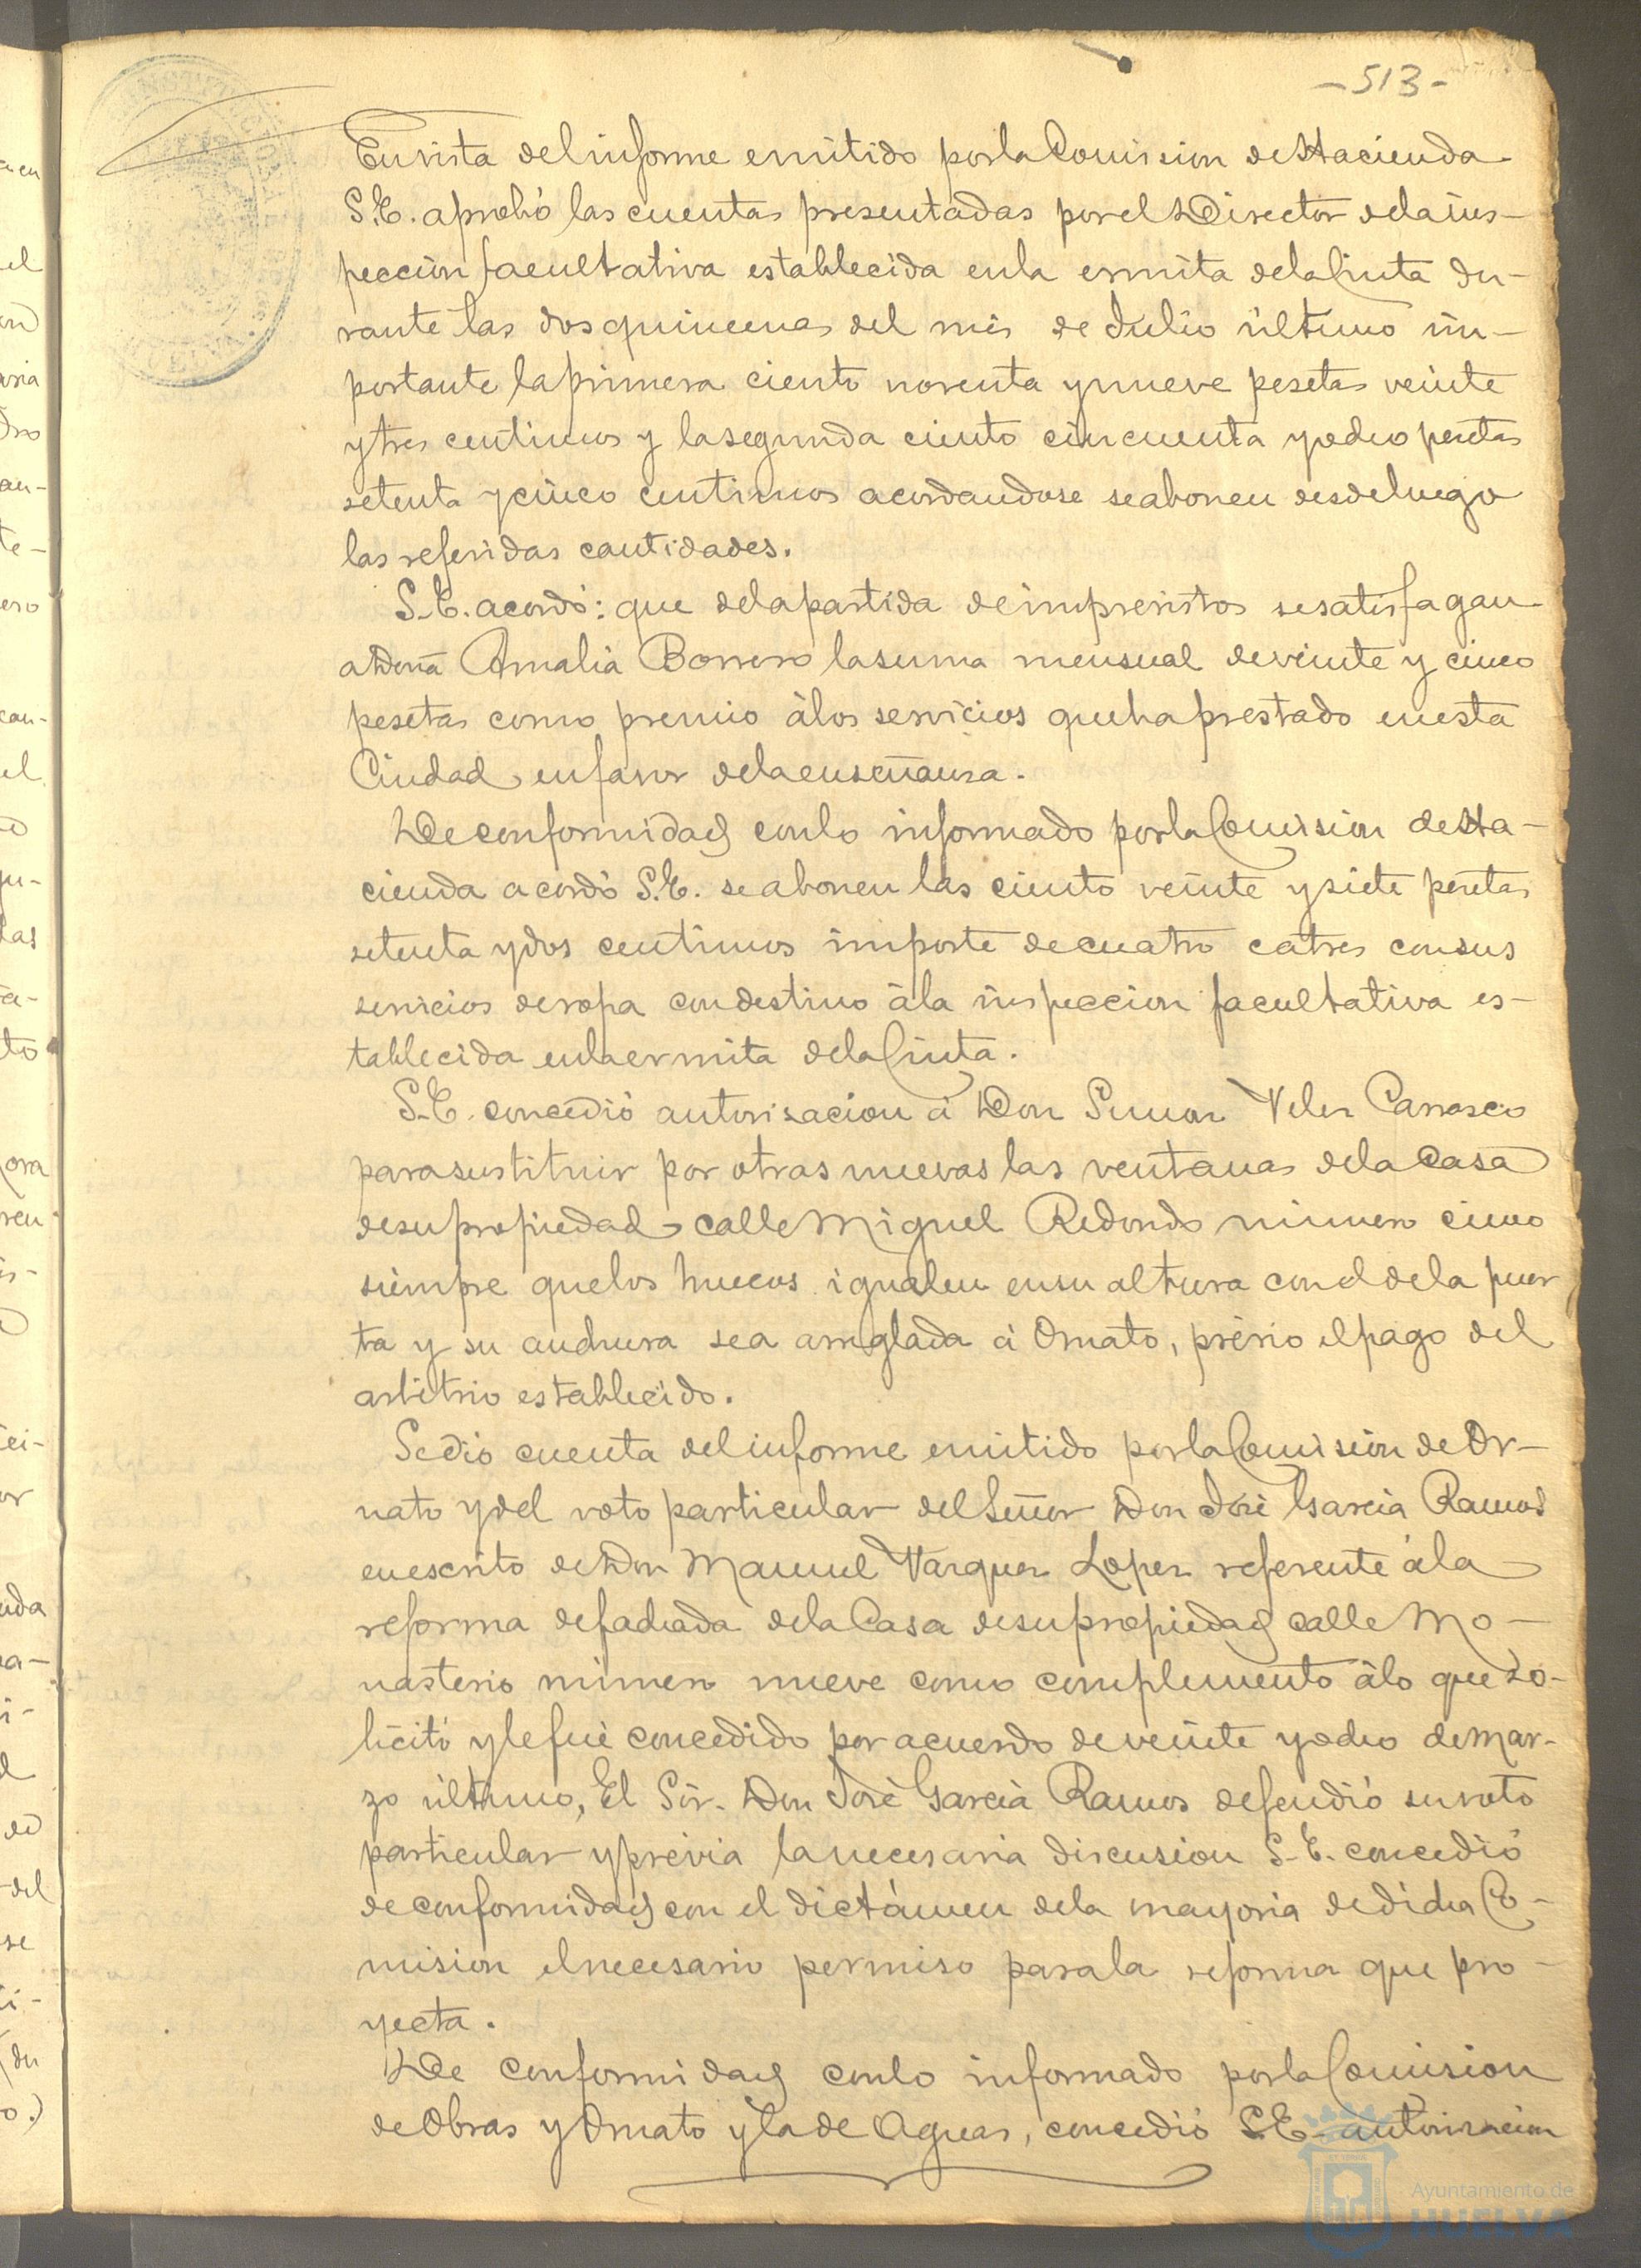 -513-
En vista del informe emitido por la Comision de Hacienda
S.E. aprobó las cuentas presentadas por el Director de la ins-
pección facultativa establecida en la ermita de la Cinta du-
rante las dos quincenas del mes de Julio último im-
portante la primera ciento noventa y nueve pesetas veinte
y tres centimos y la segunda ciento cincuenta y ocho pesetas
setenta y cinco centimos acordandose se abonen desde luego
las referidas cantidades.
S.E. acordó: que de la partida de imprevistos se satisfagan
a Doña Amalia Borrero la suma mensual de veinte y cinco
pesetas como premio á los servicios que ha prestado en esta
Ciudad en favor de la enseñanza.
De conformidad con lo informado por la Comision de Ha-
cienda acordó S.E. se abonen las ciento veinte y siete pesetas
setenta y dos centimos importe de cuatro catres con sus
servicios de ropa con destino á la inspeccion facultativa es-
tablecida en la ermita de la Cinta.
S.E. concedió autorizacion á Don Simon Velez Carrasco
para sustituir por otras nuevas las ventanas de la casa
de su propiedad calle Miguel Redondo número cinco
siempre que los huecos igualen en su altura con el de la puer
ta y su anchura sea arreglada á Ornato, prévio el pago del
arbitrio establecido.
Se dió cuenta del informe emitido por la Comisión de Or-
nato y del voto particular del Señor Don José Garcia Ramos
en escrito de Don Manuel Vazquez Lopez referente á la
reforma de fachada de la Casa de su propiedad calle Mo-
nasterio número nueve como complemento á lo que so-
licitó y le fué concedido por acuerdo de veinte y ocho de Mar-
zo último, El Sór. Don José Garcia Ramos defendió su voto
particular y prévia la necesaria discusion S.E. concedió
de conformidad con el dictámen de la mayoria de dicha Co-
mision el necesario permiso para la reforma que pro-
yecta.
De conformidad con lo informado por la Comision
de Obras y Ornato y la de Aguas, concedió S.E. autorizacion
Ayuntamiento de
HUELVA